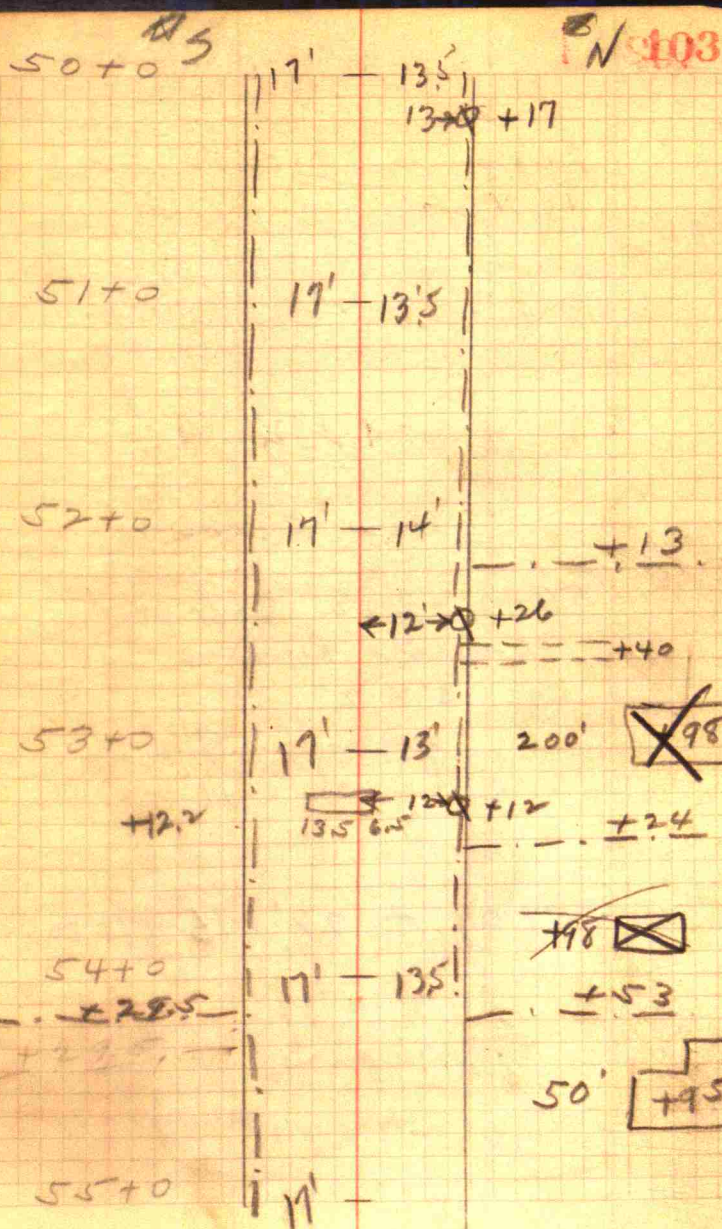 S N 103
50+0 17' — 13.5
13 +17
51+0 17' — 13'5
52+0 17' — 14'
+13
12' +26
+40
53+0 17' — 13' 200' 98
+12.2 13.5 6.5 12 +12
+24
+98
54+0 17' — 13.5
+53
50' +95
55+0 17' —